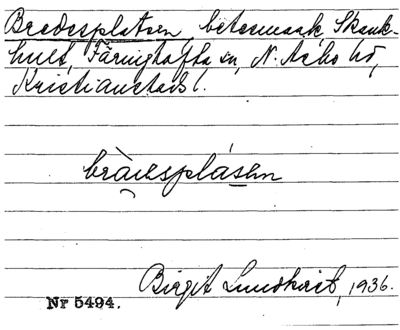 Bredesplatsen, betesmark, Skank-
hult, Färingtofta sn, N. Åsbo hd,
Kristianstads l.
Birgit Lundkvist, 1936.
Nr 5494.